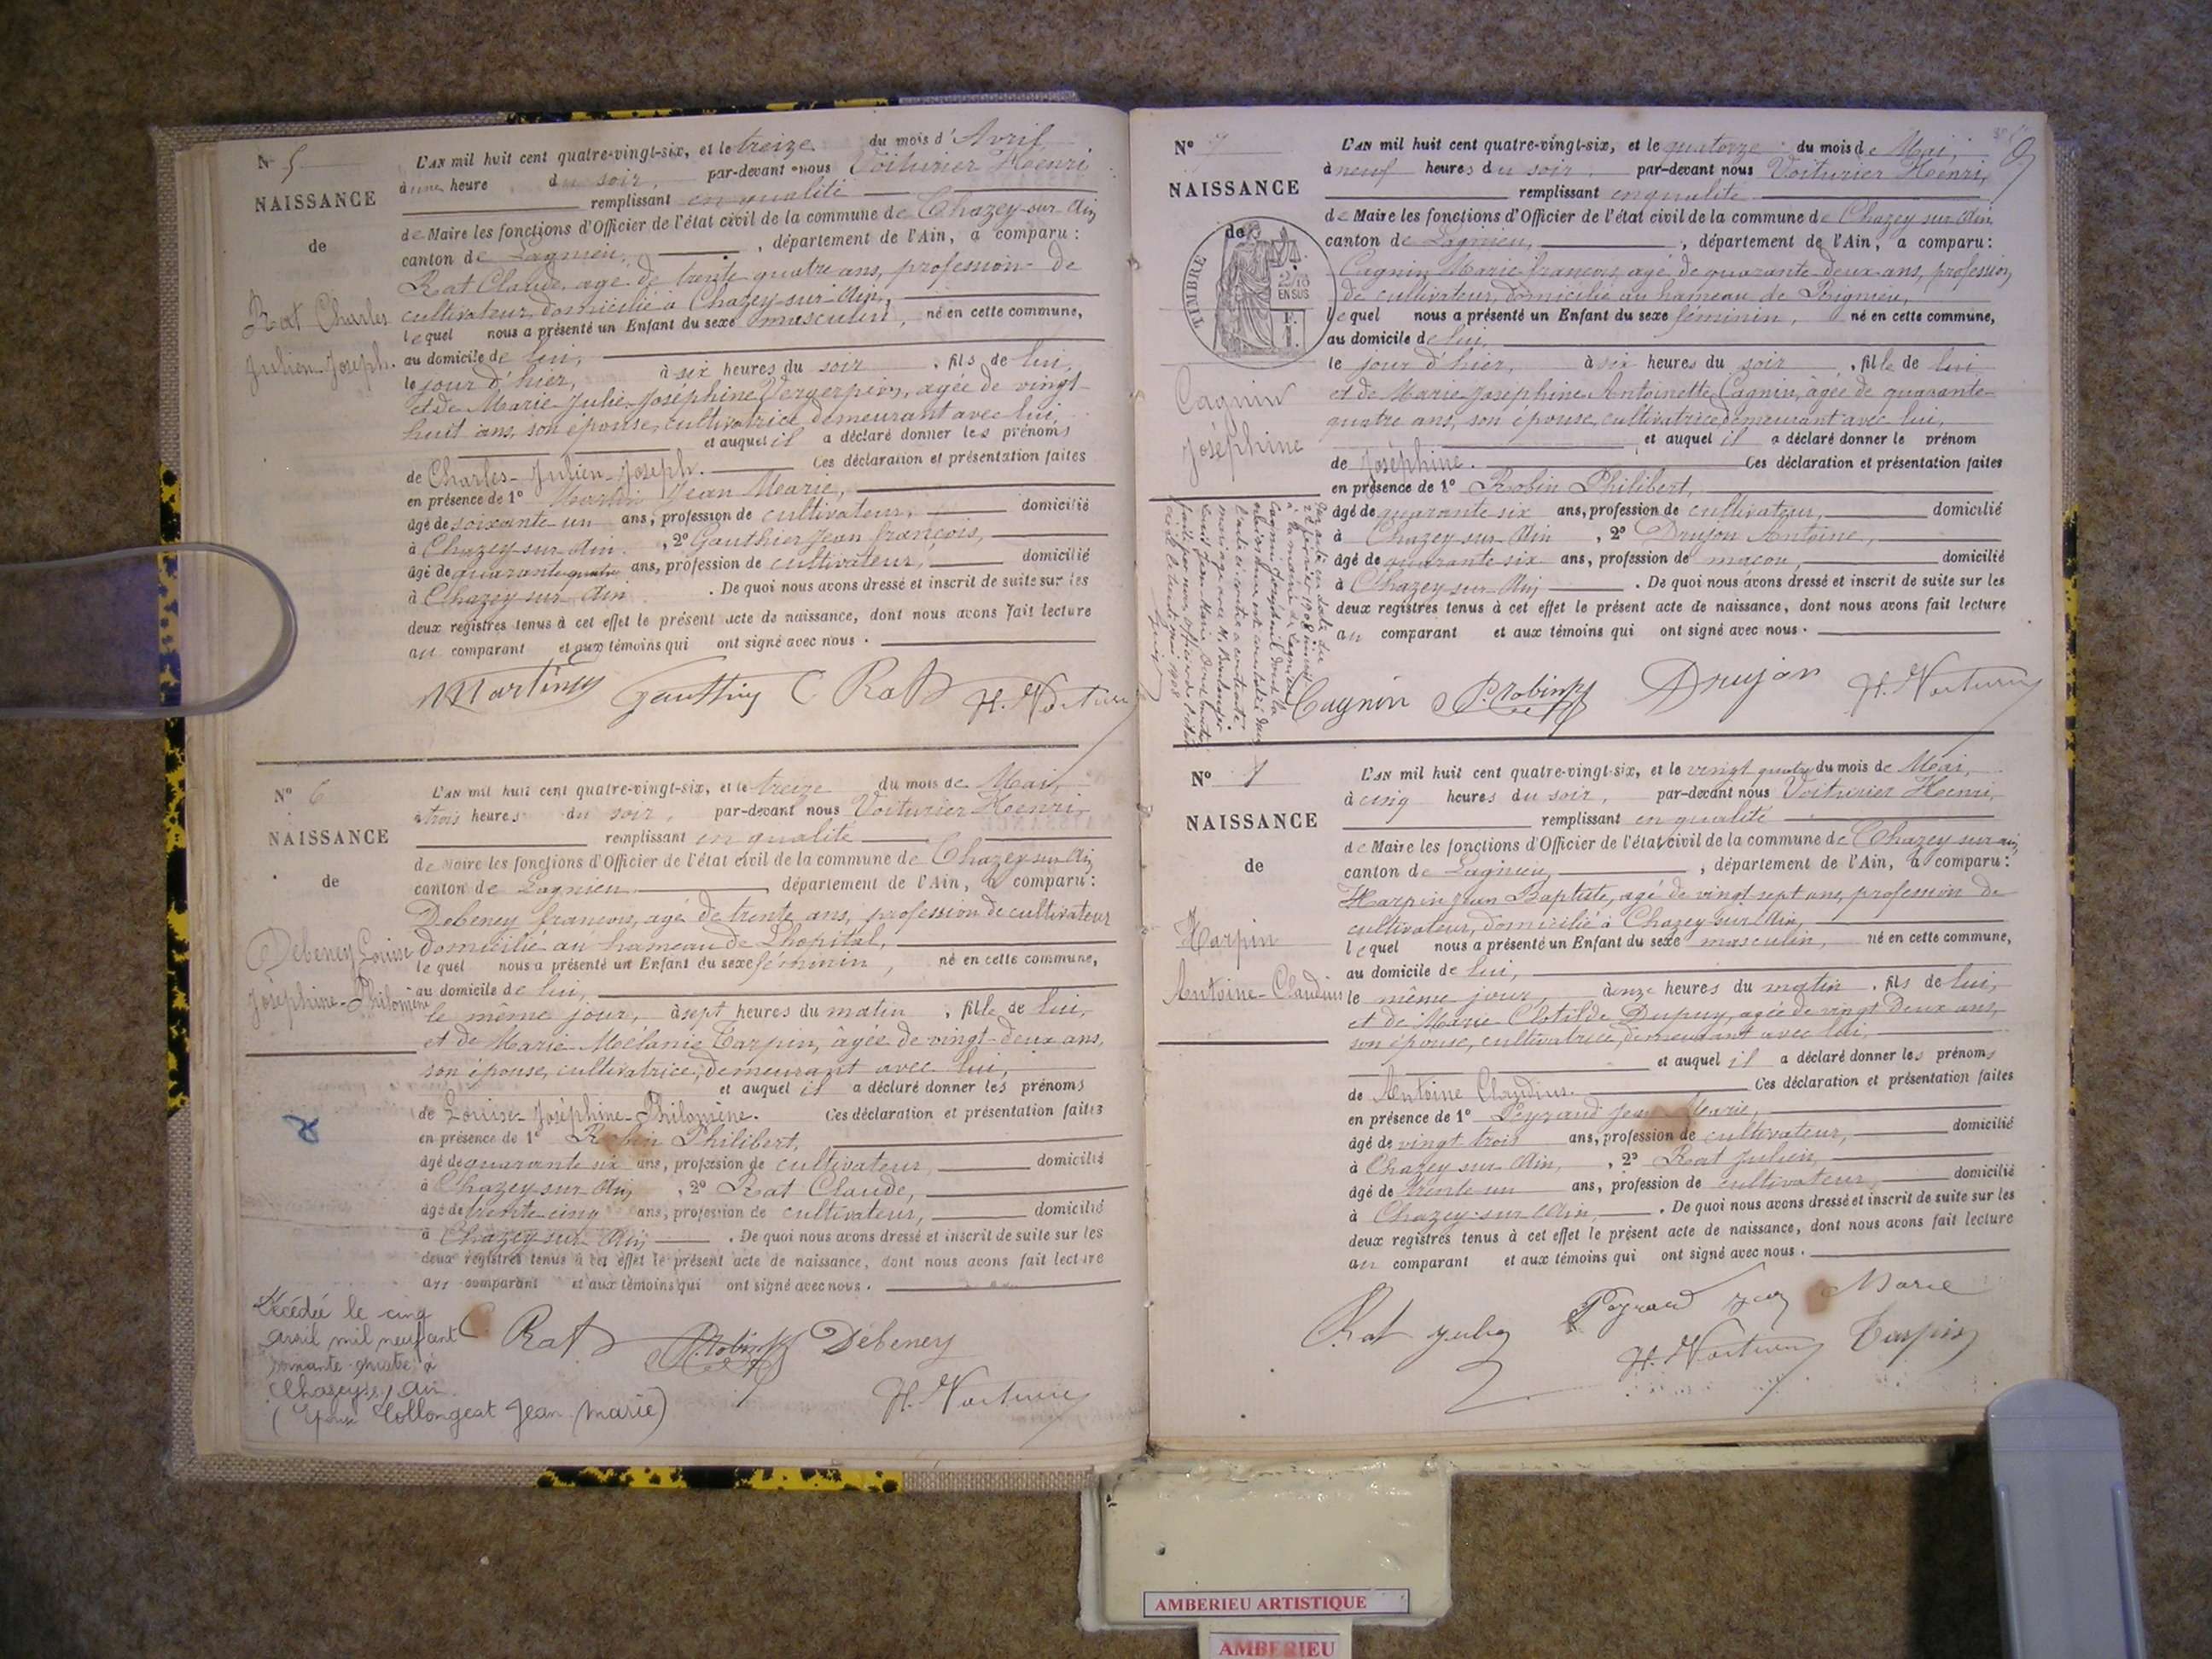 N° 5
NAISSANCE
de
Rat Charles
Julien-Joseph.
L'AN mil huit cent quatre-vingt-six, et le treize du mois d'Avril,
à une heure du soir, par-devant nous Voiturier Henri
remplissant en qualité
de Maire les fonctions d'Officier de l'état civil de la commune de Chazey-sur-Ain
canton de Lagnieu, département de l'Ain, a comparu:
Rat Claude, agé de trente quatre ans, profession de
cultivateur, domicilié à Chazey-sur-Ain,
lequel nous a présenté un Enfant du sexe masculin, né en cette commune,
au domicile de lui,
le jour d'hier, à six heures du soir, fils de lui,
et de Marie-Julie-Joséphine Vergerpion, agée de vingt-
huit ans, son épouse, cultivatrice demeurant avec lui,
et auquel il a déclaré donner les prénoms
de Charles-Julien-Joseph. Ces déclaration et présentation faites
en présence de 1° Martin Jean Marie,
âgé de soixante un ans, profession de cultivateur, domicilié
à Chazey-sur-Ain, 2° Gauthier Jean françois,
âgé de quarante quatre ans, profession de cultivateur, domicilié
à Chazey-sur-Ain. De quoi nous avons dressé et inscrit de suite sur les
deux registres tenus à cet effet le présent acte de naissance, dont nous avons fait lecture
au comparant et aux témoins qui ont signé avec nous.
Gauthier C Rat H. Voiturier
N° 6
NAISSANCE
de
Debeney Louise
Joséphine-Philomène
L'AN mil huit cent quatre-vingt-six, et le treize du mois de Mai,
à trois heures du soir, par-devant nous Voiturier Henri,
remplissant en qualité
de Maire les fonctions d'Officier de l'état civil de la commune de Chazey-sur-Ain
canton de Lagnieu, département de l'Ain, a comparu:
Debeney françois, agé de trente ans, profession de cultivateur
domicilié au hameau de Lhopital,
lequel nous a présenté un Enfant du sexe féminin, né en cette commune,
au domicile de lui,
le même jour, à sept heures du matin, fille de lui,
et de Marie Mélanie Tarpin, âgée de vingt-deux ans,
son épouse, cultivatrice, demeurant avec lui,
et auquel il a déclaré donner les prénoms
de Louise-Joséphine-Philomène. Ces déclaration et présentation faites
en présence de 1° Robin Philibert,
âgé de quarante six ans, profession de cultivateur, domicilié
à Chazey-sur-Ain, 2° Rat Claude,
âgé de trente cinq ans, profession de cultivateur, domicilié
à Chazey-sur-Ain. De quoi nous avons dressé et inscrit de suite sur les
deux registres tenus à cet effet le présent acte de naissance, dont nous avons fait lecture
au comparant et aux témoins qui ont signé avec nous.
Décédée le cinq
avril mil neuf cent
soixante-quatre à
Chazey s/ Ain
(Epouse Collongeat Jean Marie)
C. Rat P. Robin Debeney
H. Voiturier
N° 7
NAISSANCE
de
TIMBRE
EN SUS
Cagnin
Joséphine
L'AN mil huit cent quatre-vingt-six, et le quatorze du mois de Mai,
à neuf heures du soir, par-devant nous Voiturier Henri,
remplissant en qualité
de Maire les fonctions d'Officier de l'état civil de la commune de Chazey sur Ain
canton de Lagnieu, département de l'Ain, a comparu:
Cagnin Marie françois, agé de quarante deux ans, profession
de cultivateur, domicilié au hameau de Rignieu,
lequel nous a présenté un Enfant du sexe féminin, né en cette commune,
au domicile de lui,
le jour d'hier, à six heures du soir, fille de lui
et de Marie Joséphine Antoinette Cagnin, âgée de quarante-
quatre ans, son épouse, cultivatrice demeurant avec lui,
et auquel il a déclaré donner le prénom
de Joséphine. Ces déclaration et présentation faites
en présence de 1° Robin Philibert,
âgé de quarante six ans, profession de cultivateur, domicilié
à Chazey-sur-Ain, 2° Drujon Antoine,
âgé de quarante six ans, profession de maçon, domicilié
à Chazey-sur-Ain. De quoi nous avons dressé et inscrit de suite sur les
deux registres tenus à cet effet le présent acte de naissance, dont nous avons fait lecture
au comparant et aux témoins qui ont signé avec nous.
Par acte en date du
Cagnin P. Robin Drujon H. Voiturier
N° 8
NAISSANCE
de
Tarpin
Antoine-Claudius
L'AN mil huit cent quatre-vingt-six, et le vingt quatre du mois de Mai,
à cinq heures du soir, par-devant nous Voiturier Henri,
remplissant en qualité
de Maire les fonctions d'Officier de l'état civil de la commune de Chazey sur ain
canton de Lagnieu, département de l'Ain, a comparu:
Tarpin Jean Baptiste, agé de vingt sept ans, profession de
cultivateur, domicilié à Chazey sur Ain,
lequel nous a présenté un Enfant du sexe masculin, né en cette commune,
au domicile de lui,
le même jour, à onze heures du matin, fils de lui,
et de Marie Clotilde Dupuy, agée de vingt deux ans,
son épouse, cultivatrice, demeurant avec lui,
et auquel il a déclaré donner les prénoms
de Antoine Claudius. Ces déclaration et présentation faites
en présence de 1° Peyraud Jean Marie,
âgé de vingt trois ans, profession de cultivateur, domicilié
à Chazey sur Ain, 2° Rat Julien,
âgé de trente un ans, profession de cultivateur, domicilié
à Chazey-sur-Ain, De quoi nous avons dressé et inscrit de suite sur les
deux registres tenus à cet effet le présent acte de naissance, dont nous avons fait lecture
au comparant et aux témoins qui ont signé avec nous.
Rat Peyraud Jean Marie
H. Voiturier Tarpin
AMBERIEU ARTISTIQUE
AMBERIEU